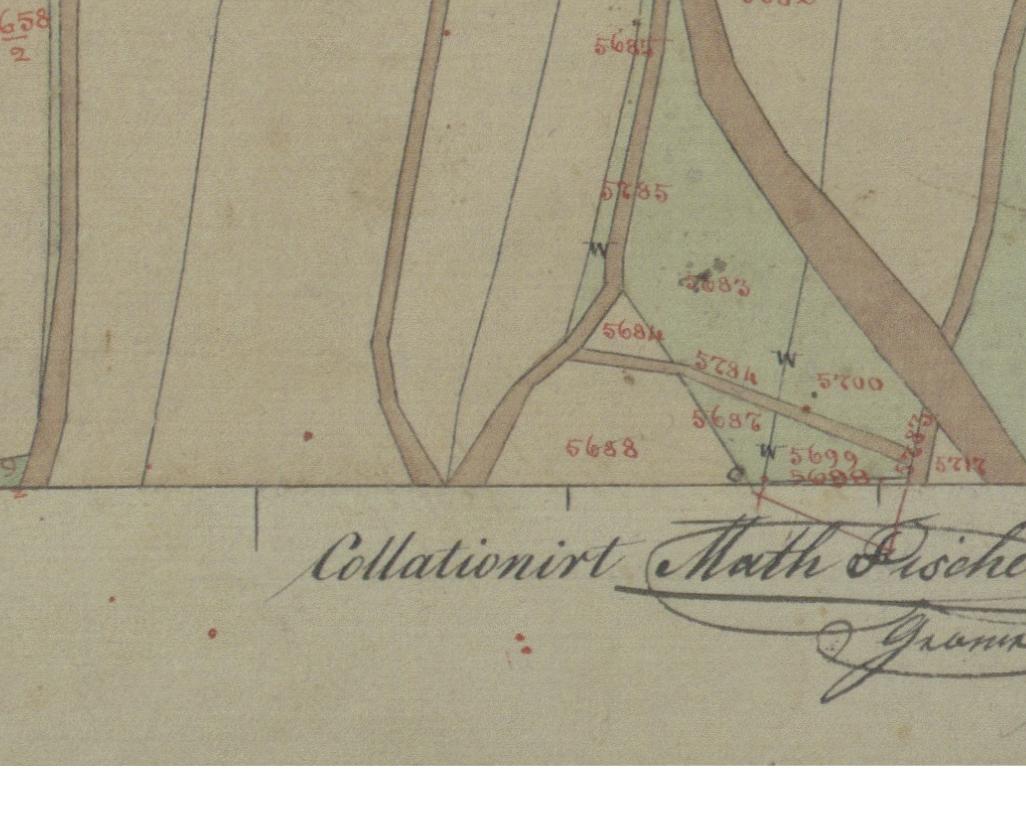 658
2
5685
5785
W
5683
5684
5784
W
5700
5687
5783
5688
W
5699
5717
Collationirt Math Fische
Geome